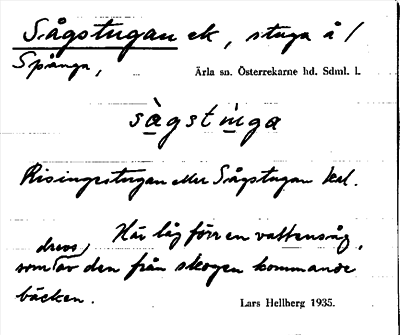 Sågstugan ek, stuga å /
Spånga, Ärla sn. Österrekarne hd. Sdml. l.
sà̱gstu̱ga
Risingestugan eller Sågstugan kal.
Här låg förr en vattensåg,
som drevs av den från skogen kommande
bäcken. Lars Hellberg 1935.